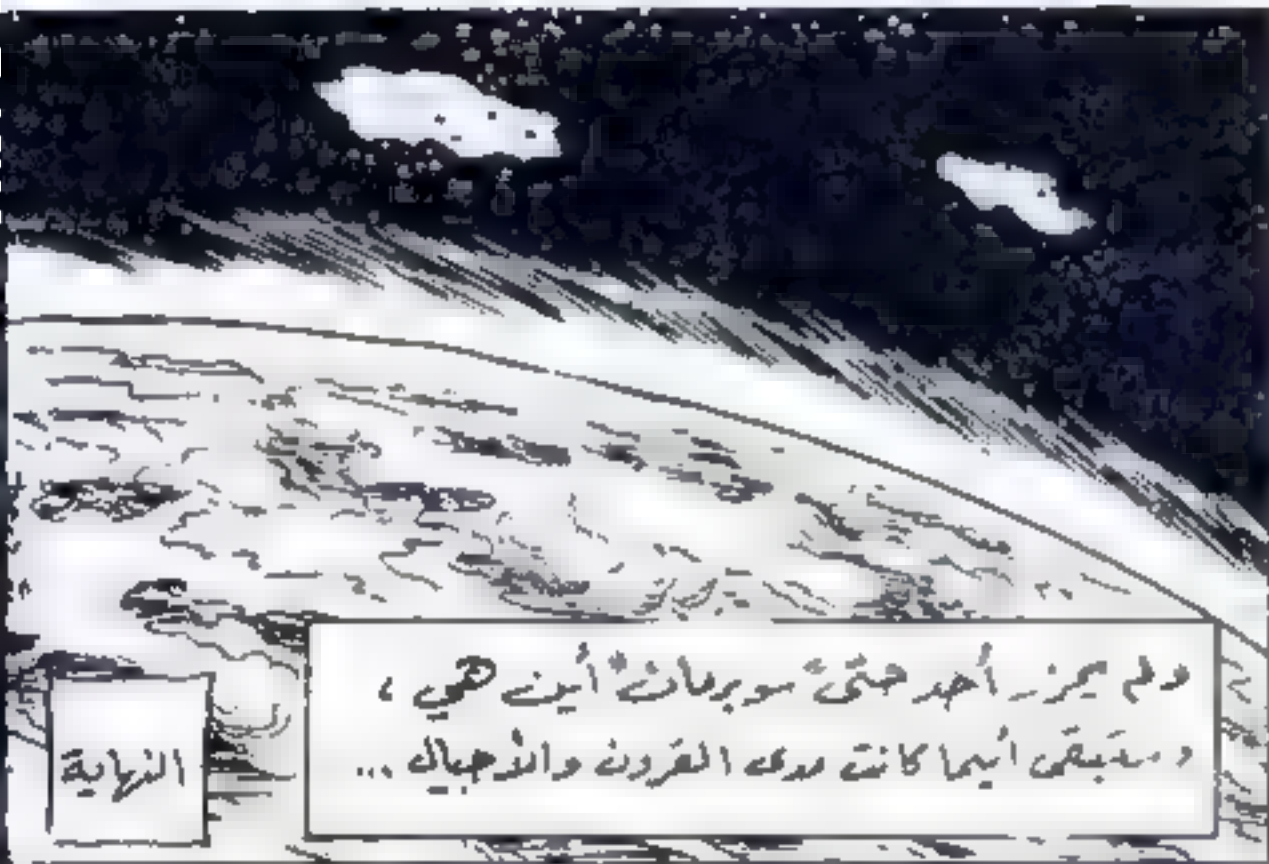 ولم يحزر أحد حتى "سوبرمان" أين هي ،
وستبقى أينما كانت مدى القرون والأجيال ...
النهاية